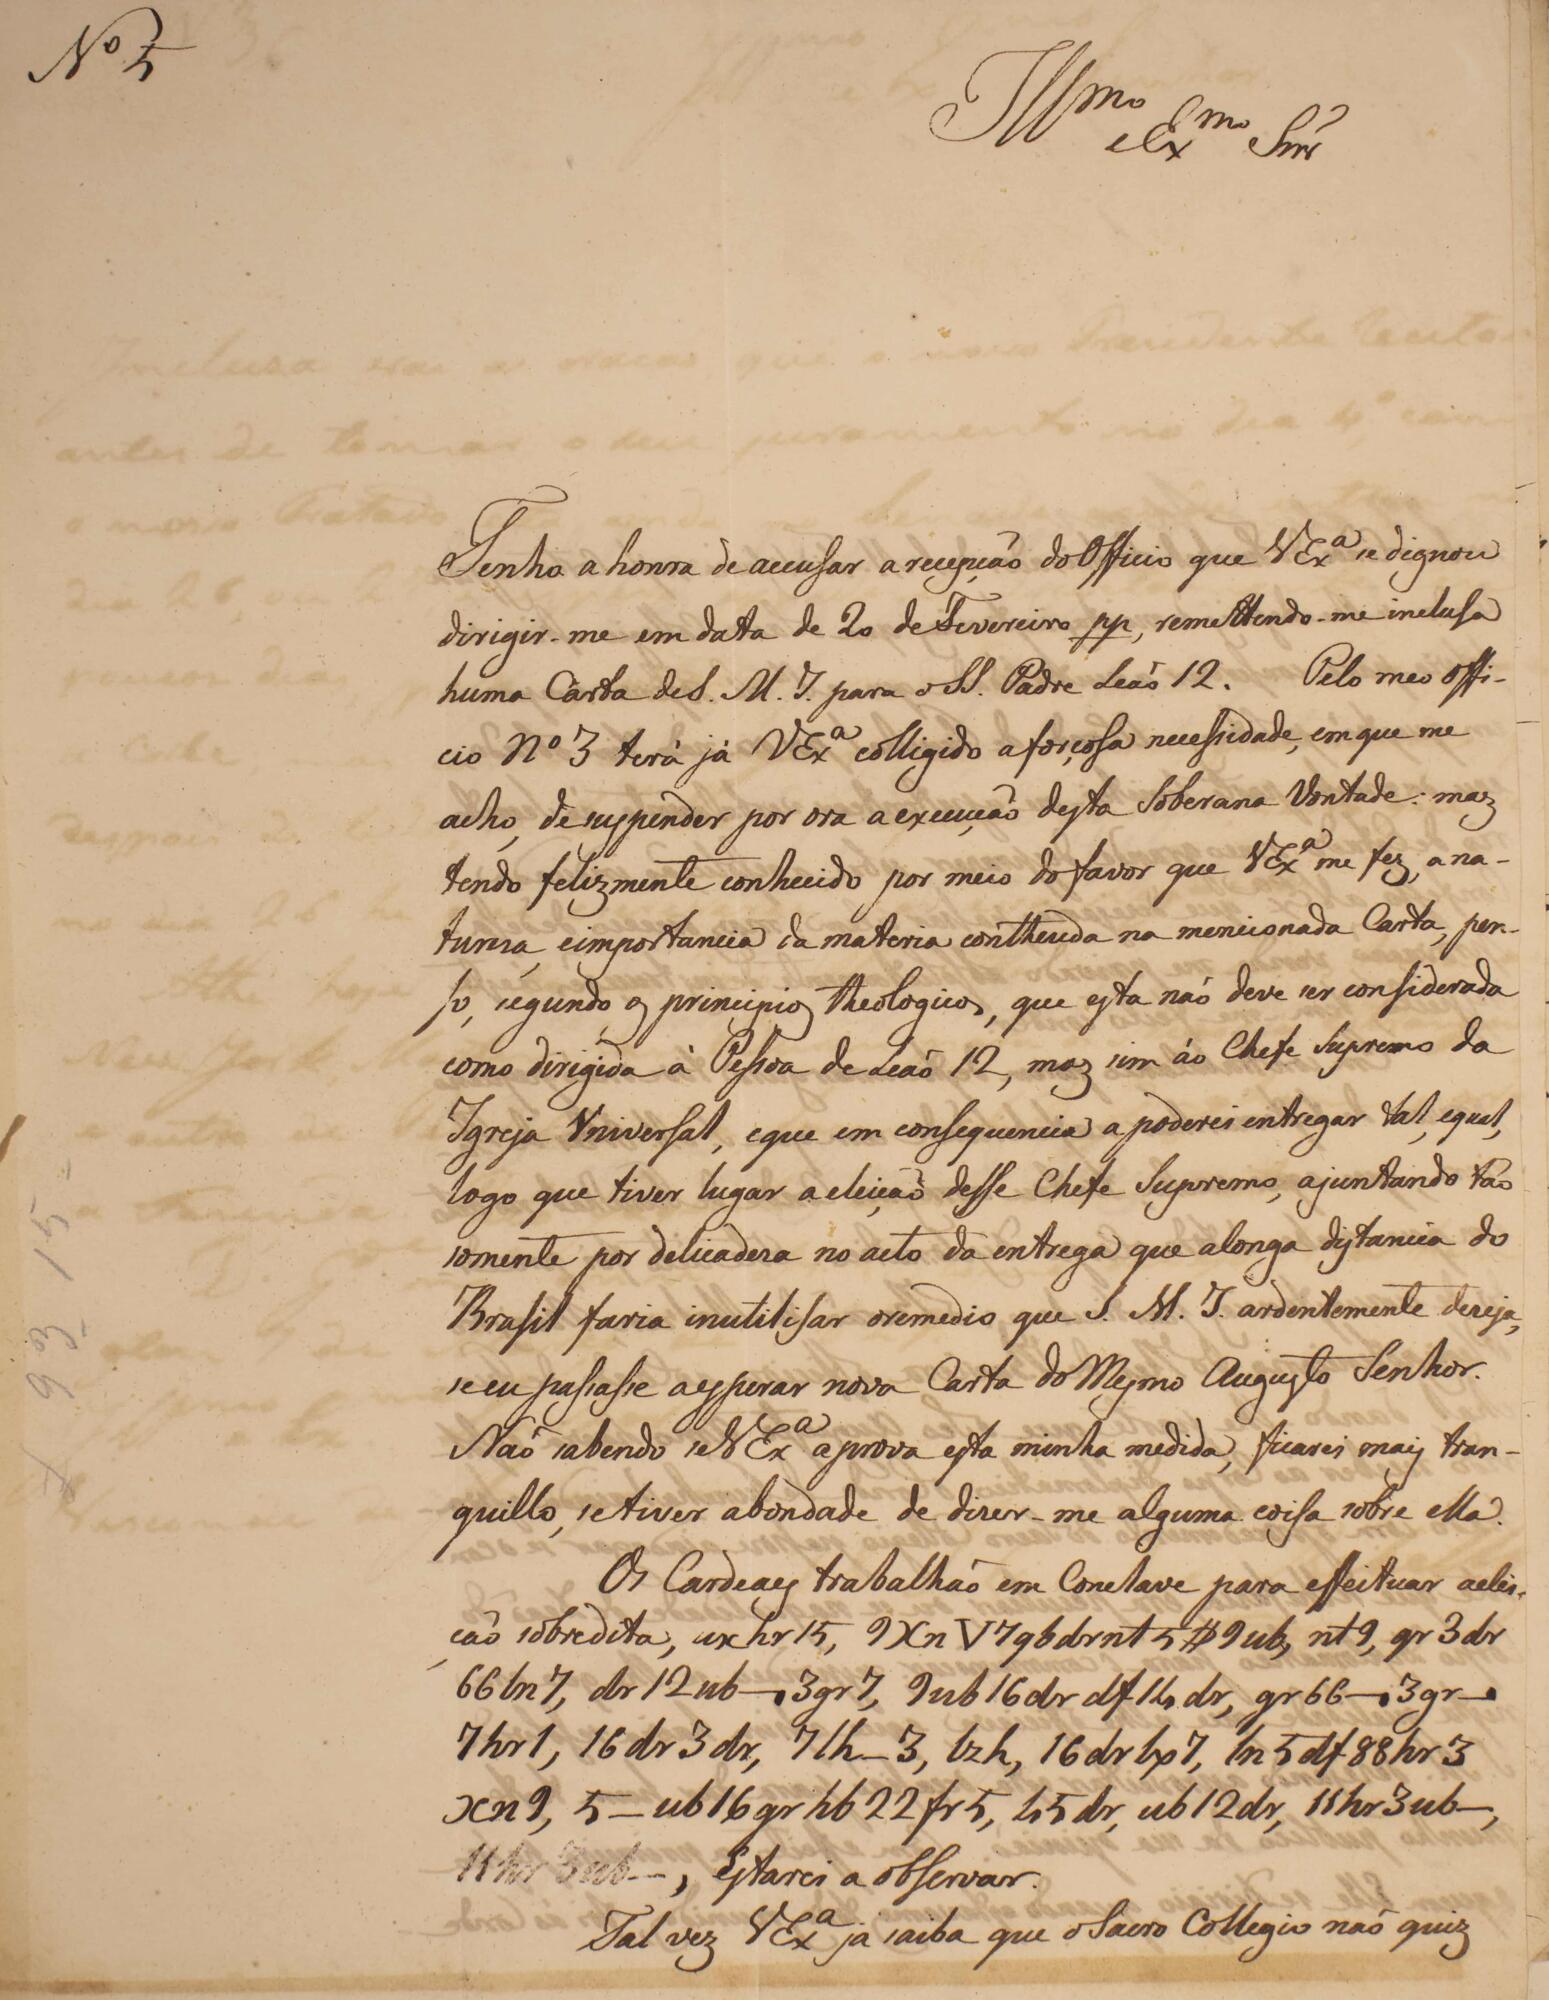 Nº 5
Illmo
e Exmo Snr
Tenho a honra de accusar a recepção do Officio que VExª se dignou
dirigir-me em data de 20 de Fevereiro pp, remettendo-me inclusa
huma Carta de S. M. I. para o SS. Padre Leaõ 12. Pelo meo Offi-
cio Nº 3 terà jà VExª colligido a forçosa necessidade, em que me
acho, de suspender por ora a execução desta Soberana Vontade: mas
tendo felizmente conhecido por meio do favor que VExª me fez, a na-
tureza, e importancia da materia contheuda na mencionada Carta, pen-
so, segundo os principios theologicos, que esta naõ deve ser considerada
como dirigida à Pessoa de Leaõ 12, mas sim áo Chefe Supremo da
Igreja Universal, e que em consequencia a poderei entregar tal, e qual,
logo que tiver lugar a eleição desse Chefe Supremo, ajuntando tão
somente por delicadeza no acto da entrega que a longa distancia do
Brasil faria inutilisar o remedio que S. M. I. ardentemente deseja,
se eu passasse a esperar nova Carta do Mesmo Augusto Senhor.
Naõ sabendo se VExª aprova esta minha medida, ficarei mais tran-
quillo, se tiver a bondade de dizer-me alguma coisa sobre ella.
Os Cardeaes trabalhaõ em Conclave para effeituar a elei-
ção sobredita, ux hr 15, 9 X n V 7 9 b dr nt 5 # 9 ub, nt 9, gr 3 dr
66 ln 7, dr 12 ub —. 3 gr 7, 9 ub 16 dr df 14 dr, gr 66 —. 3 gr —.
7 hr 1, 16 dr 3 dr, 7 lh — 3, bzh, 16 dr bp 7, ln 5 df 88 hr 3
xn 9, 5 — ub 16 gr hb 22 fr 5, h 5 dr, ub 12 dr, 11 hr 3 ub —,
11 hr 3 ub —, Estarei a observar.
Tal vez VExª jà saiba que o Sacro Collegio naõ quiz